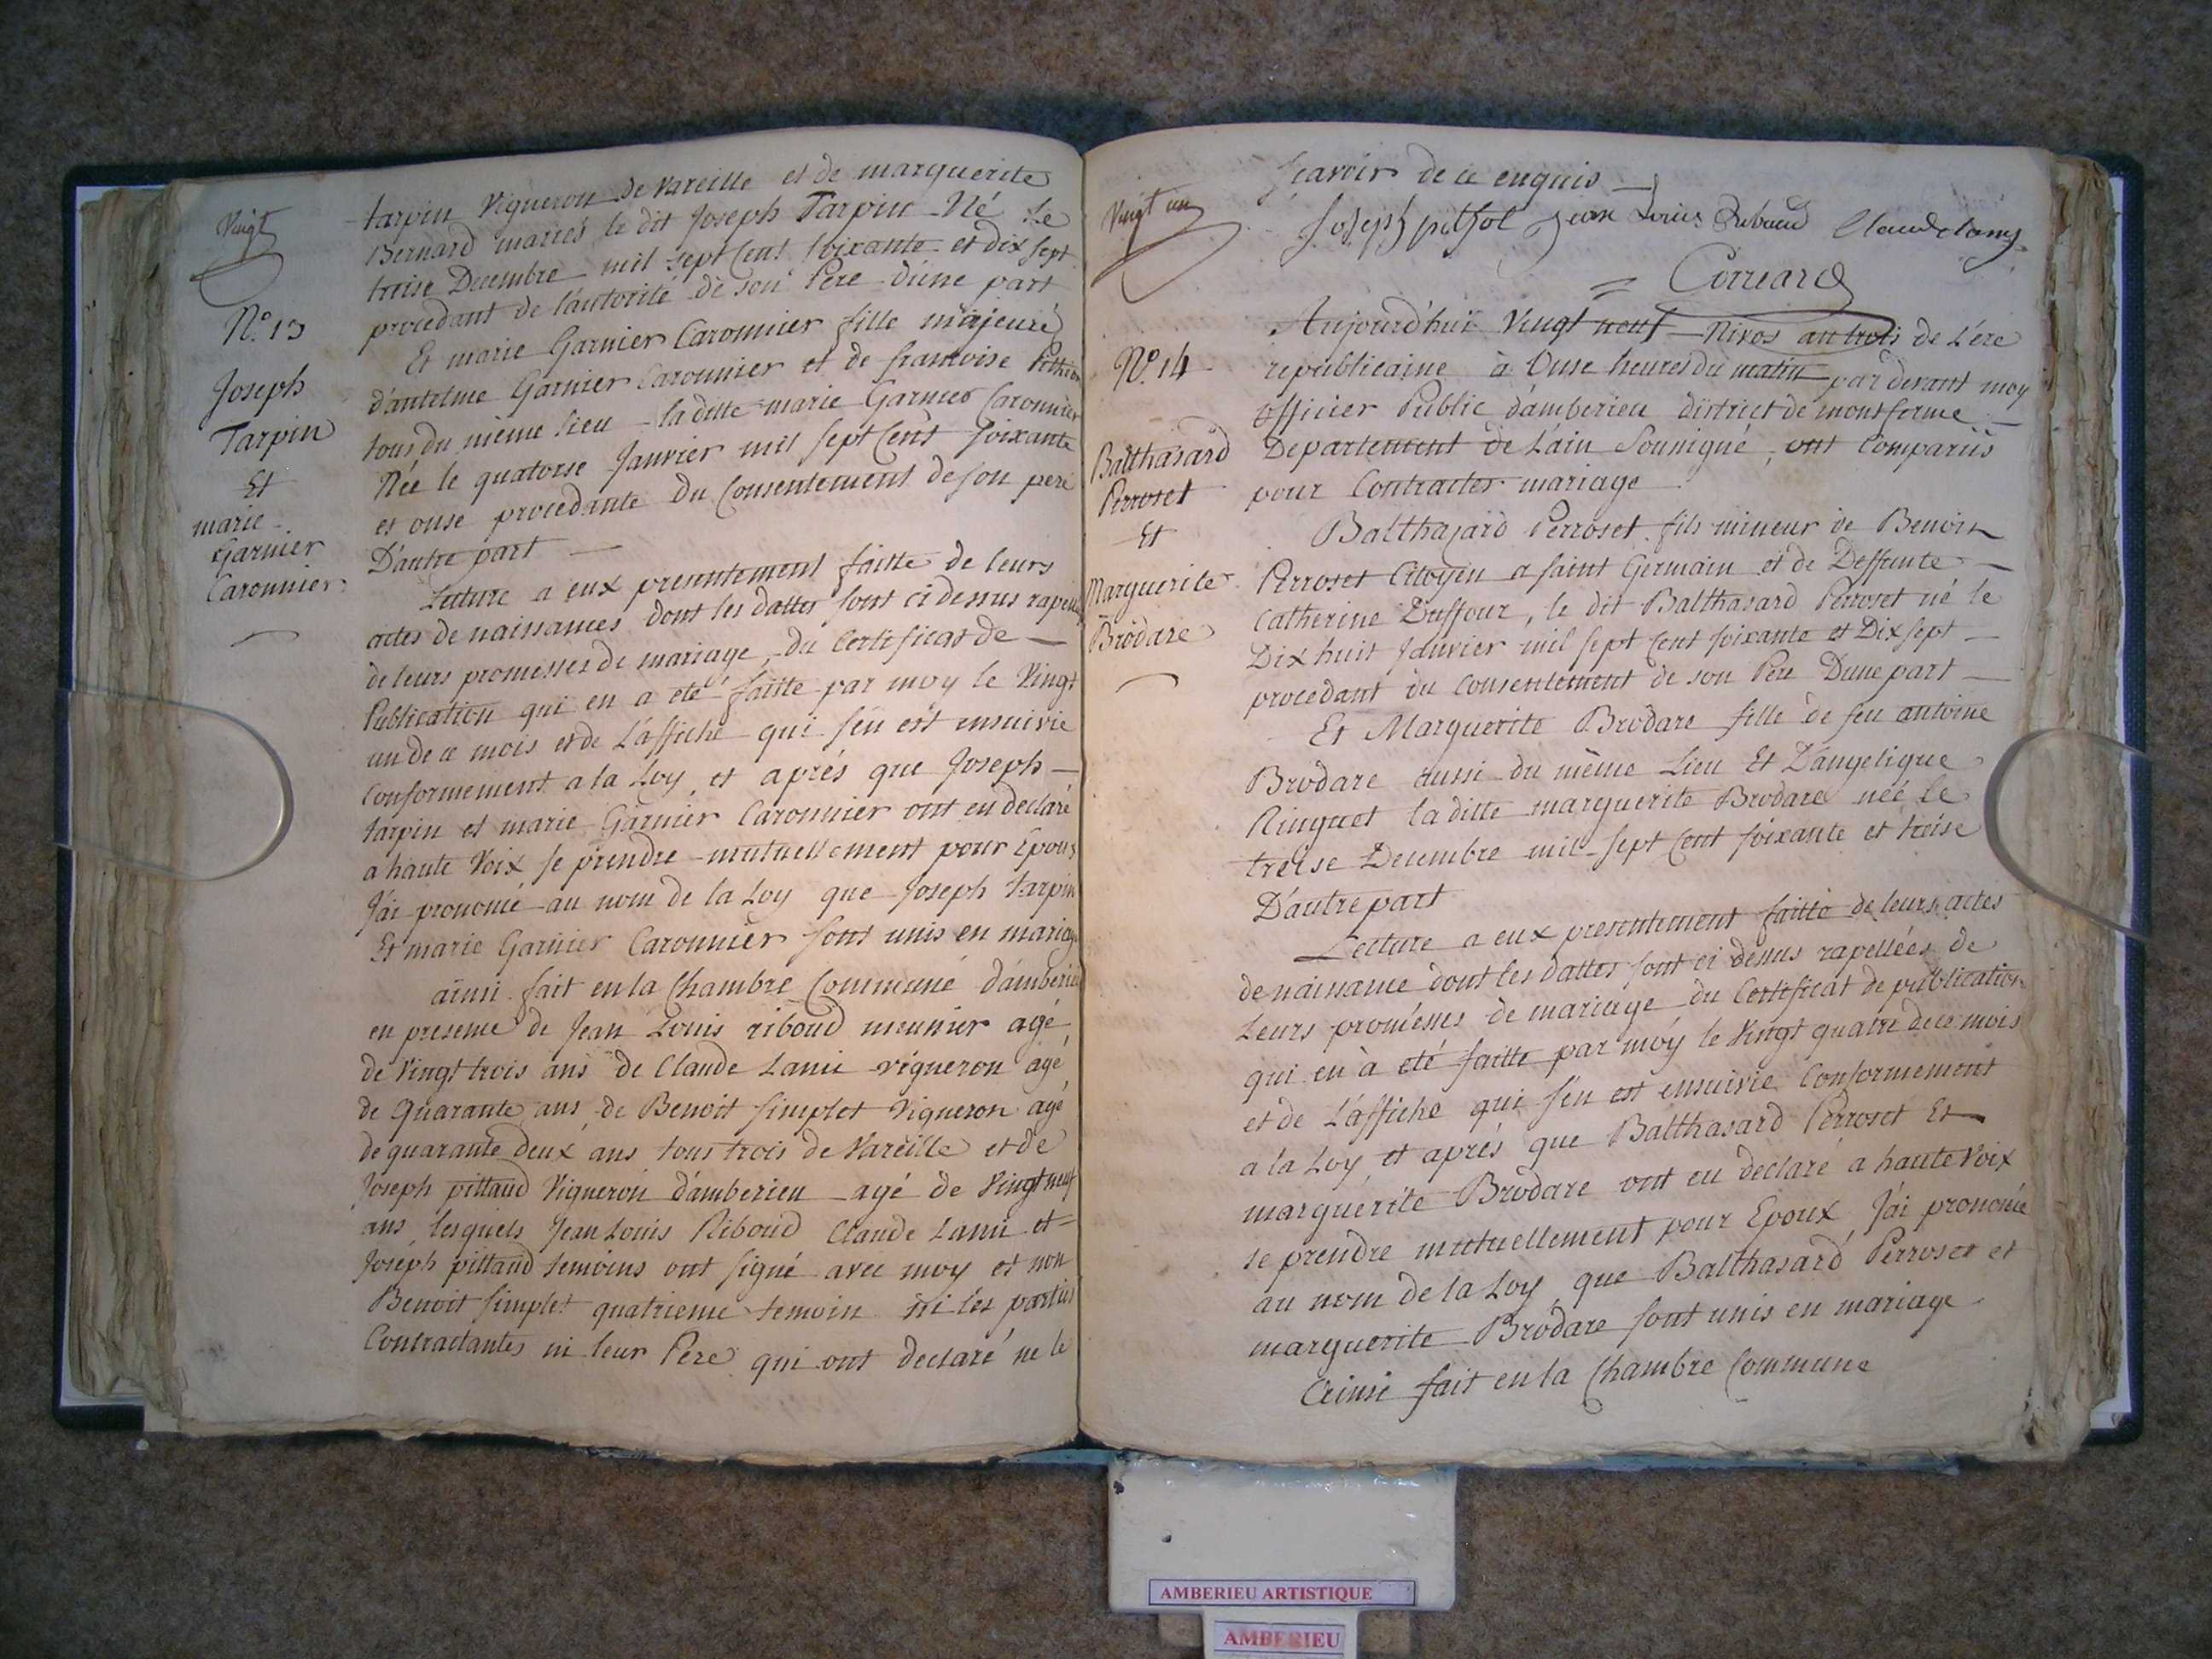 Vingt
N.o 13
Joseph
Tarpin
Et
marie
Garnier
Caronnier
tarpin Vigneron de Vareille et de marguerite
Bernard mariés le dit Joseph Tarpin Né Le
treise Decembre mil sept Cent soixante et dix sept
procedant de l'autorité de son Pere d'une part
Et marie Garnier Caronnier fille majeure
d'antelme Garnier Caronnier et de francoise
tous du même lieu la ditte marie Garnier Caronnier
Née le quatorse Janvier mil sept Cent soixante
et onse procedante du Consentement de son pere
D'autre part
Lecture a eux presentement faitte de leurs
actes de naissances dont les dattes sont ci dessus
de leurs promesses de mariage, du Certificat de
Publication qui en a eté faitte par moy le Vingt
un de ce mois et de L'affiche qui s'en est ensuivie
Conformement a la Loy, et aprés que Joseph
tarpin et marie Garnier Caronnier ont eu declaré
a haute Voix se prendre mutuellement pour Epoux
J'ai prononcé au nom de la Loy que Joseph tarpin
Et marie Garnier Caronnier sont unis en mariage
ainsi fait en la Chambre Commune d'amberieu
en presence de Jean Louis riboud meunier agé
de Vingt trois ans de Claude Lami vigneron agé
de Quarante ans, de Benoit simplet Vigneron agé
de quarante deux ans tous trois de Vareille et de
Joseph pittaud Vigneron d'amberieu agé de Vingt neuf
ans, lesquels Jean Louis Riboud Claude Lami et
Joseph pittaud temoins ont signé avec moy et non
Benoit simplet quatrieme temoin ni les parties
Contractantes ni leur Pere qui ont declaré ne le
Vingt un
N.o 14
Balthasard
Perroset
Et
Marguerite
Brodare
scavoir de ce enquis
Joseph Jean Louis
Correard
Aujourd'hui Vingt neuf Nivos an trois de L'ere
republicaine à Onse heures du matin par devant moy
Officier Public d'amberieu district de montferme
Departement de L'ain Sousigné, ont Comparus
pour Contracter mariage
Balthasard Perroset fils mineur de Benoit
Perroset Citoyen a saint Germain et de Deffunte
Catherine Duffour, le dit Balthasard Perroset né le
Dix huit Janvier mil sept Cent soixante et Dix sept
procedant du Consentement de son Pere D'une part
Et Marguerite Brodare fille de feu antoine
Brodare aussi du même Lieu Et D'angelique
Ringuet la ditte marguerite Brodare née le
treise Decembre mil sept Cent soixante et treise
D'autre part
Lecture a eux presentement faitte de leurs actes
de naissance dont les dattes sont ci dessus rapellées de
Leurs promesses de mariage du Certificat de publication
qui en à eté faitte par moy le Vingt quatre de ce mois
et de L'affiche qui s'en est ensuivie Conformement
a la Loy et aprés que Balthasard Perroset Et
marguerite Brodare ont eu declaré a haute Voix
se prendre mutuellement pour Epoux J'ai prononcé
au nom de la Loy que Balthasard Perroset et
marguerite Brodare sont unis en mariage
Ainsi fait en la Chambre Commune
AMBERIEU ARTISTIQUE
AMBERIEU